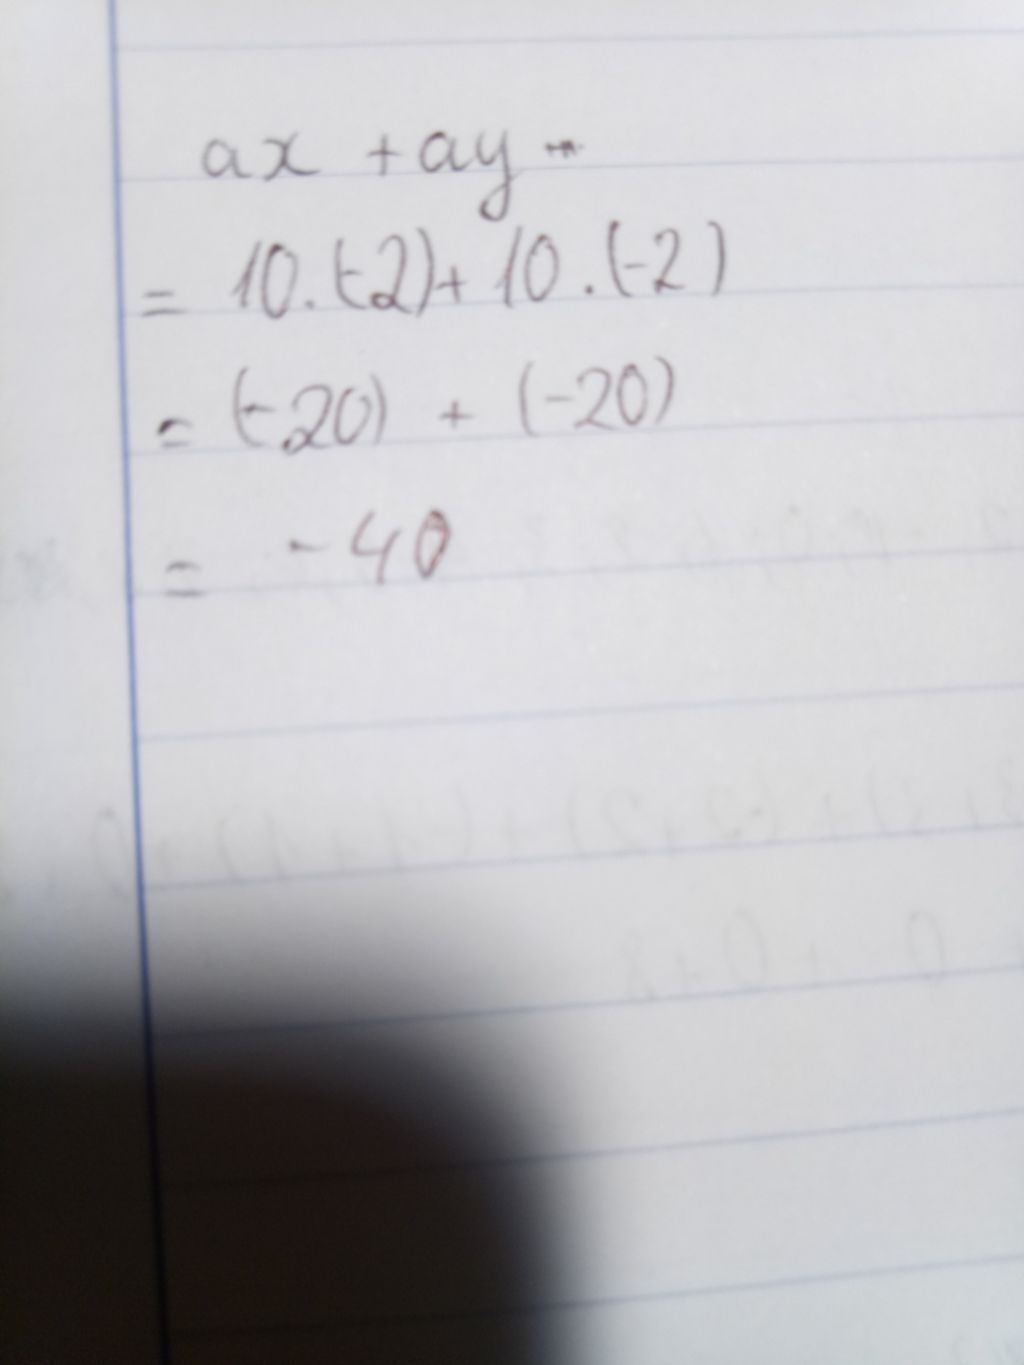 ax + ay
= 10.(-2)+ 10.(-2)
= (-20) + (-20)
= -40